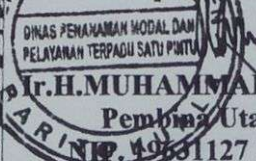 DINAS PENANAMAN MODAL DAN
PELAYANAN TERPADU SATU PINTU
Ir.H.MUHAMMA
Pembina Uta
NIP. 19631127